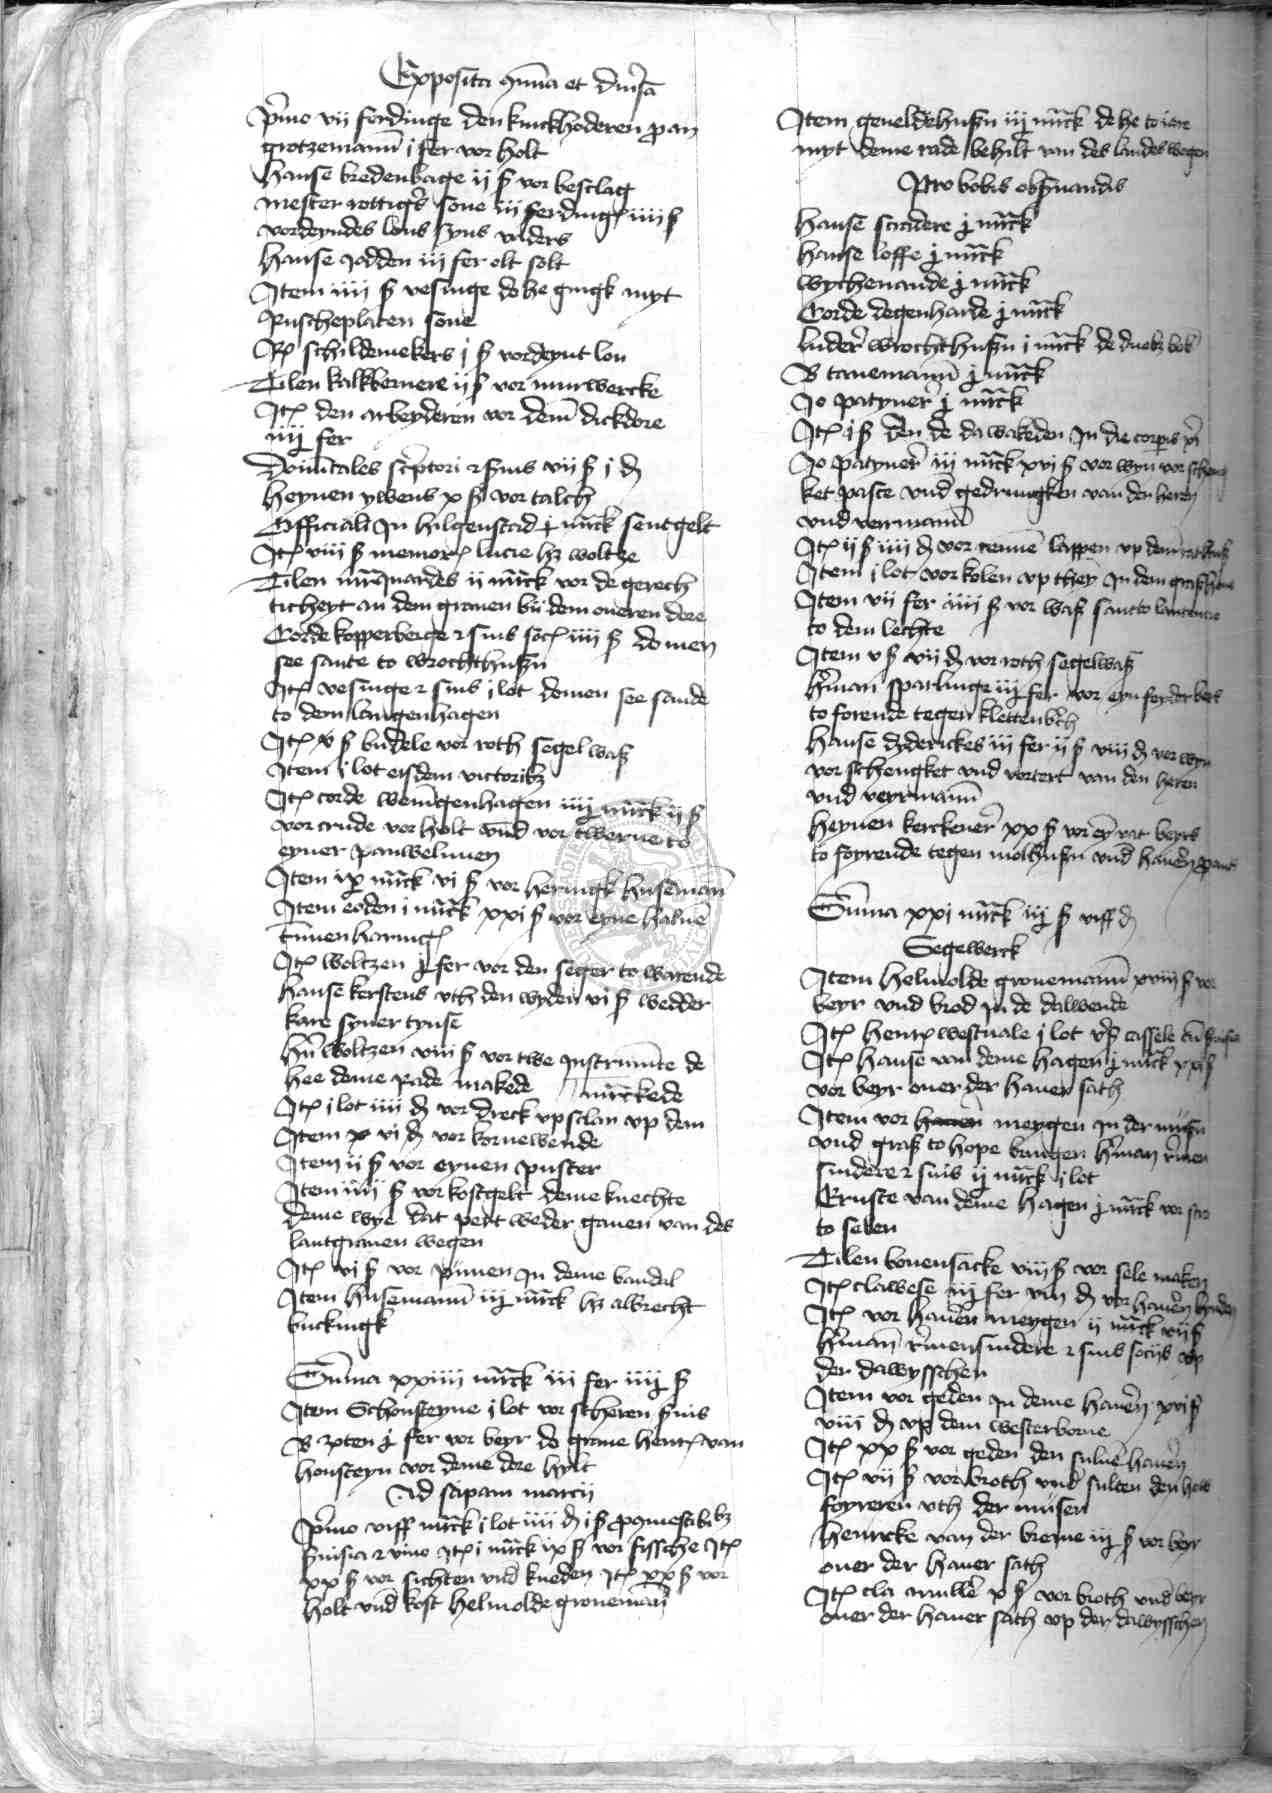 Exposita co(mmun)ia et div(er)sa
P(ri)mo vii ferdinge den knickhoderen pan
grotzeman(n) i fer vor holt
Hanse bredenbage ii ß vor beslag
mester rottig(er)s sone iii ferding(e) iiii ß
vordeyndes lons syns vaders
Hanse Jodden iii fer olt solt
Item iiii ß vesinge do he gingk myt
Puscheplaten sone
R(elicte) schildemekers j ß vordeynt lon
Tilen kalkbernere ii ß vor murwercke
It(em) den arbeyderen vor dem dickdore
iiij fer
Do(min)icales sc(ri)ptori (et) suis vii ß j d
Heynen ywens x ß vor talch
Officiali In hilgenstad j m(a)rck sentgelt
It(em) viii ß memor(ie) lucie h(er) woltze
Tilen m(ar)quardes ii m(a)rck vor de gerech
ticheyt an dem graven bii dem overen dore
Corde kopperberge (et) suis soc(iis) iiii ß do men
see sante to wrochthusen
It(em) vesinge (et) suis j lot do men see sande
to dem langenhagen
It(em) v ß budele vor roth segel waß
Item j lot eisdem victorib(us)
It(em) corde wenigenhagen iiij m(a)rck ii ß
vor crude vor holt vnd vor twerne to
eyner pauwelunen
Item ix m(a)rck vi ß vor heringk huseman(n)
Item eoden i m(a)rck xxi ß vor eyne halue
tunnen haring(es)
It(em) woltzen j fer vor den seger to warende
Hanse kerstens vth den wyden vi ß wedder
kare syner tynse
H(er)n woltzen viii ß vor twe Instrume(n)te de
hee deme rade makede
m(a)rckede
It(em) i lot iiii d vor dreck vpslan vp dem
Item vi d vor kornewende
Item ii ß vor eynen puster
Item iiii ß vor kostgelt deme knechte
deme wye dat pert weder gauen van des
lantgrauen wegen
It(em) vi ß vor pu(n)nen In deme bandal
Item huseman(n) iij m(a)rck h(er) albrecht
buckingk
Su(m)ma xxiiii m(a)rck iii fer iiij ß
Item Schonsteyne i lot vor scheren
B zoten j fer vor beyr do graue henr(ick) van
honsteyn vor deme dore hylt
Ad sapam marcii
P(ri)mo viff m(a)rck i lot iiii d i ß p(ro) co(m)mestibib(us)
s(er)uisia (et) vino It(em) i m(a)rck ix ß vor fissche It(em)
xx ß vor sichten vnd kneden It(em) xx ß vor
holt vnd kost helmolde groneman(n)
Item geueldehusen iij m(a)rck de he to iare
myt deme rade behilt van des landes wegen
Pro bobis ob(ser)uandis
Hanse scradere j m(a)rck
Hanse loffe j m(a)rck
wychenande j m(a)rck
Corde degenharde j m(a)rck
luder wrochthusen i m(a)rck de duob(us) bob(us)
B taneman(n) j m(a)rck
Jo patyner j m(a)rck
It(em) i ß den de da wakeden In die corp(or)is (Christ)i
Jo patyner iii m(a)rck xvi ß vor wyn vor scheng
ket pasce vnd gedrungken van den heren
vnd verman(n)
It(em) ii ß iiii d vor re(n)nen lappen vp dem rathuß
Item i lot vor kolen vp they In dem
Item vii fer iiii ß vor waß sancto laurencio
to dem lechte
Item v ß vii d vor roth segelwaß
H(er)man sparlinge iij fer vor eyn foyder bers
to forende tegen klettenb(er)ch
Hanse dyderickes iii fer ii ß viii d vor wyn
vor schengket vnd vortert van den heren
vnd veyrman(n)
Heynen kerckener xx ß vor ey(n) vat beyrs
to foyrende tegen molhusen vnd
Su(m)ma xxi m(a)rck iij ß viff d
Segewerck
Item helmolde groneman(n) xviii ß vor
beyr vnd brod In de dalwende
It(em) henr(ick) westuale i lot v(er)s(us) cassele
It(em) hanse van deme hagen j m(a)rck xxi ß
vor beyr ouer der hauer sath
Item vor meygen In der musen
vnd graß to hope bringen h(er)man r(e)men
sindere (et) suis ij m(a)rck i lot
Ernste van deme hagen j m(a)rck vor
to selen
Tilen bouensacke viii ß vor sele maken
It(em) clawese iij fer viii d vor hau(er)n bynden
It(em) vor hau(er)n meygen ii m(a)rck vii ß
h(er)man(n) r(e)mensnidere (et) suis sociis vp
der dawysschen
Item vor geden In deme hau(er)n xvi ß
viii d vp dem westerborne
It(em) xx ß vor geden den suluen hau(er)n
It(em) vii ß vor broth vnd sulten den how
foyreren vth der musen
Henricke van der breme iij ß vor beyr
ouer der hauer sath
It(em) cla mulle(r) x ß vor broth vnd beyr
ouer der hauer sath vp der dawysschen